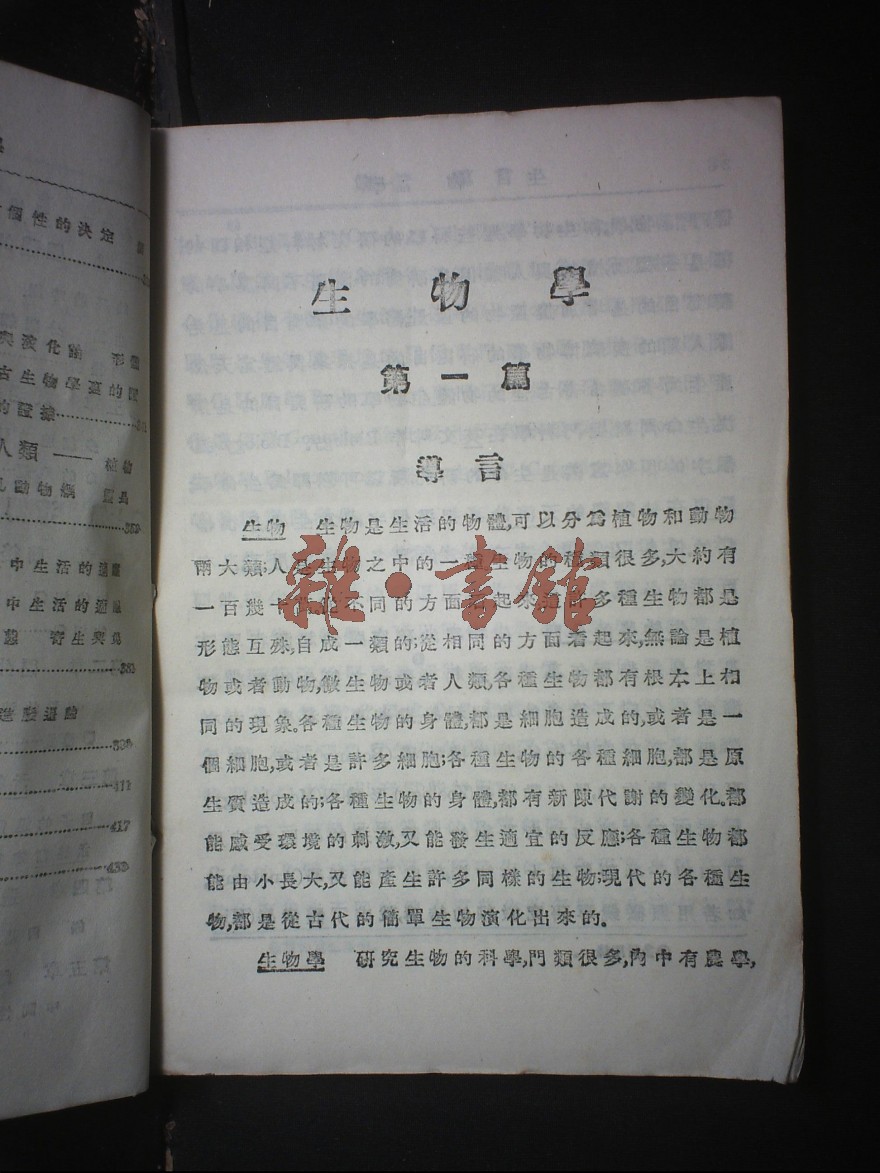 個性的決定
演化論 形態
古生物學上的證
的證據
人類 —— 植物
乳動物綱 靈長
359
中生活的適應
中生活的適應
態 寄生與共
383
411
417
生物學
第一篇
導言
生物 生物是生活的物體,可以分爲植物和動物
兩大類;人是生物之中的一種生物的種類很多,大約有
一百幾十 不同的方面看起來,這許多種生物都是
形態互殊,自成一類的;從相同的方面看起來,無論是植
物或者動物,微生物或者人類,各種生物都有根本上相
同的現象。各種生物的身體,都是細胞造成的,或者是一
個細胞,或者是許多細胞;各種生物的各種細胞,都是原
生質造成的;各種生物的身體,都有新陳代謝的變化。都
能感受環境的刺激,又能發生適宜的反應;各種生物都
能由小長大,又能產生許多同樣的生物;現代的各種生
物,都是從古代的簡單生物演化出來的。
生物學 研究生物的科學,門類很多,內中有農學,
雜·書館